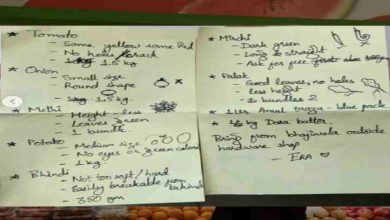 ★ Tomato
- Some yellow some Red
- No holes / crack
- 1.5 kg
★ Onion
- Small size
- Round shape
- 1.5 kg
★ Methi
- Height - less
- Leaves green
- 1 bundle.
★ Potato
- Medium size
- No eyes or green colour
- 1 kg
★ Bhindi
- Not too soft / hard
- Easily breakable from behind
- 350 gm
★ Mirchi
- Dark green
- Long & straight
- Ask for free
★ Palak
- Good leaves, no holes
- less height
- 2 bundles
★ 1 Ltr Amul - blue pack
★ 1/2 kg batter.
Bring from bhajiwala outside
hardware shop
- ERA ♡